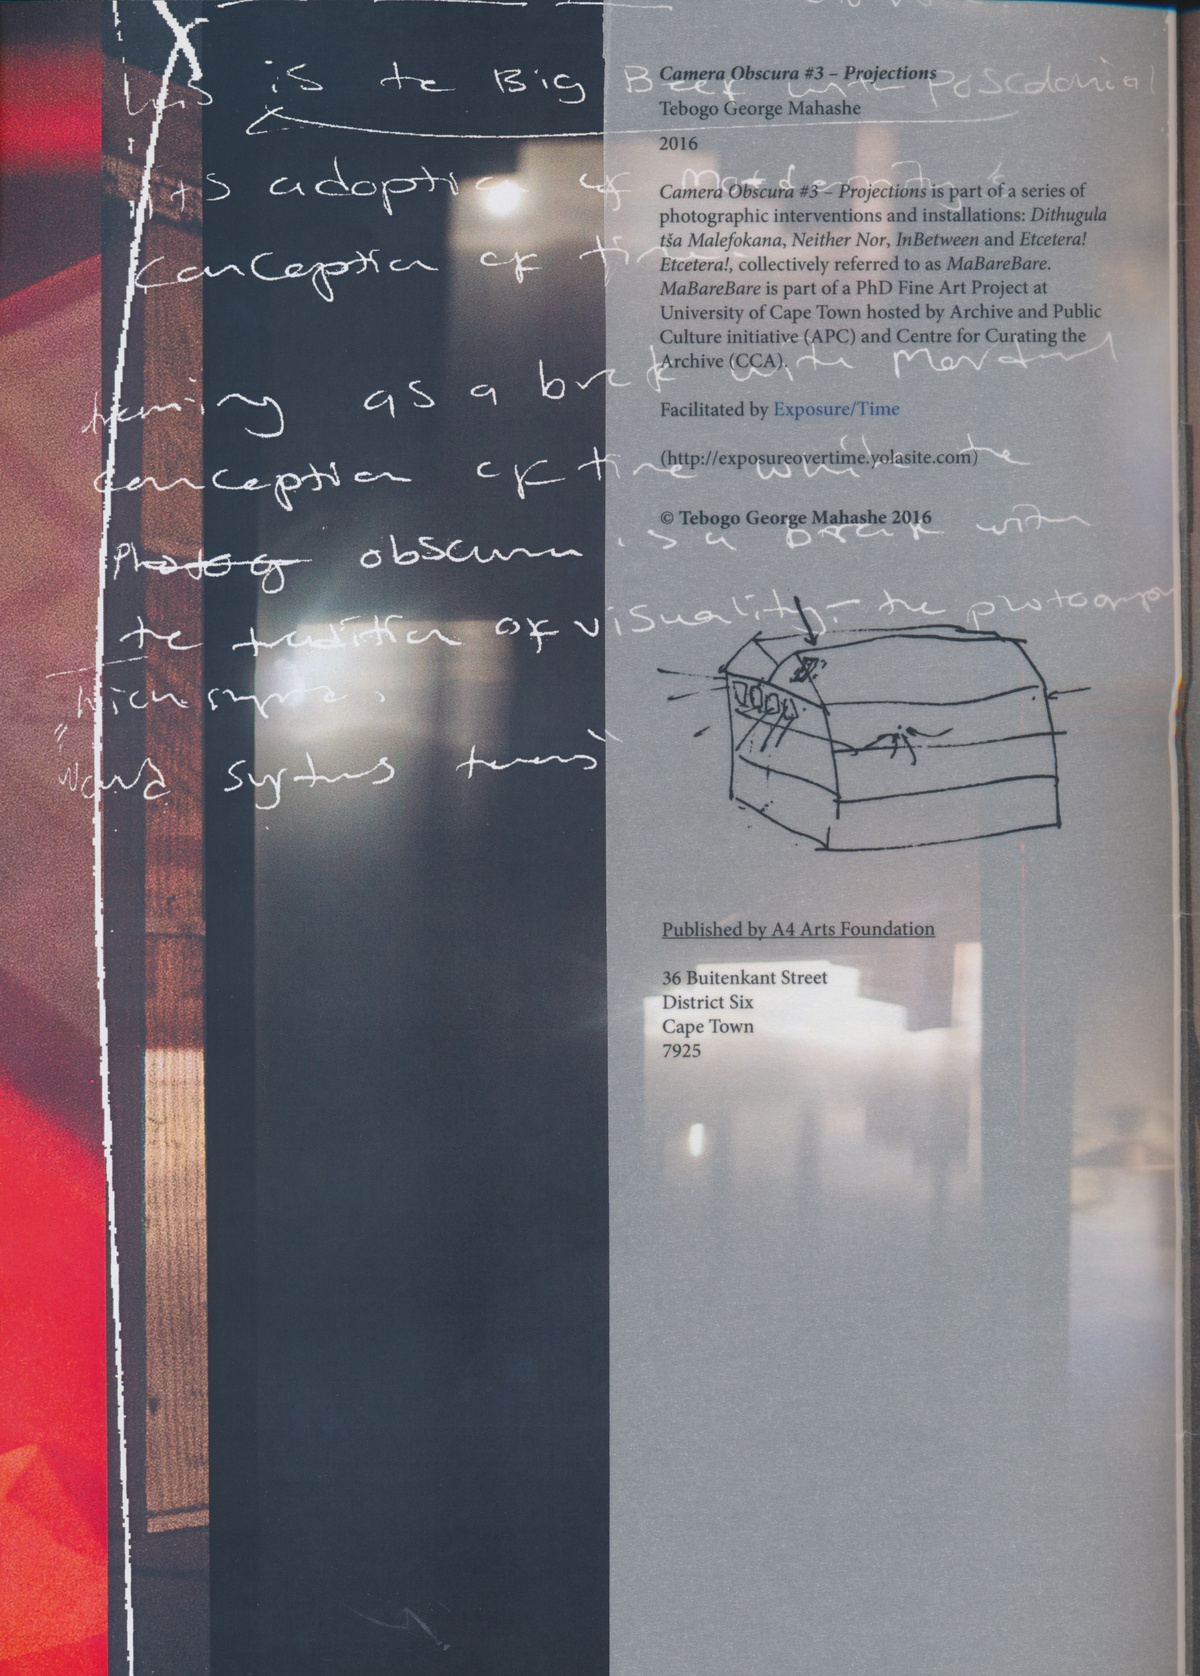 is te Big Beef with Poscolonial
ts adoption of Mordernity's
conception of time.
as a break with Mordernl
conception of time while the
Photog obscura is a break with
te tradition of visuality - the photograp
systems
Camera Obscura #3 – Projections
Tebogo George Mahashe
2016
Camera Obscura #3 – Projections is part of a series of
photographic interventions and installations: Dithugula
tša Malefokana, Neither Nor, InBetween and Etcetera!
Etcetera!, collectively referred to as MaBareBare.
MaBareBare is part of a PhD Fine Art Project at
University of Cape Town hosted by Archive and Public
Culture initiative (APC) and Centre for Curating the
Archive (CCA).
Facilitated by Exposure/Time
(http://exposureovertime.yolasite.com)
© Tebogo George Mahashe 2016
Published by A4 Arts Foundation
36 Buitenkant Street
District Six
Cape Town
7925